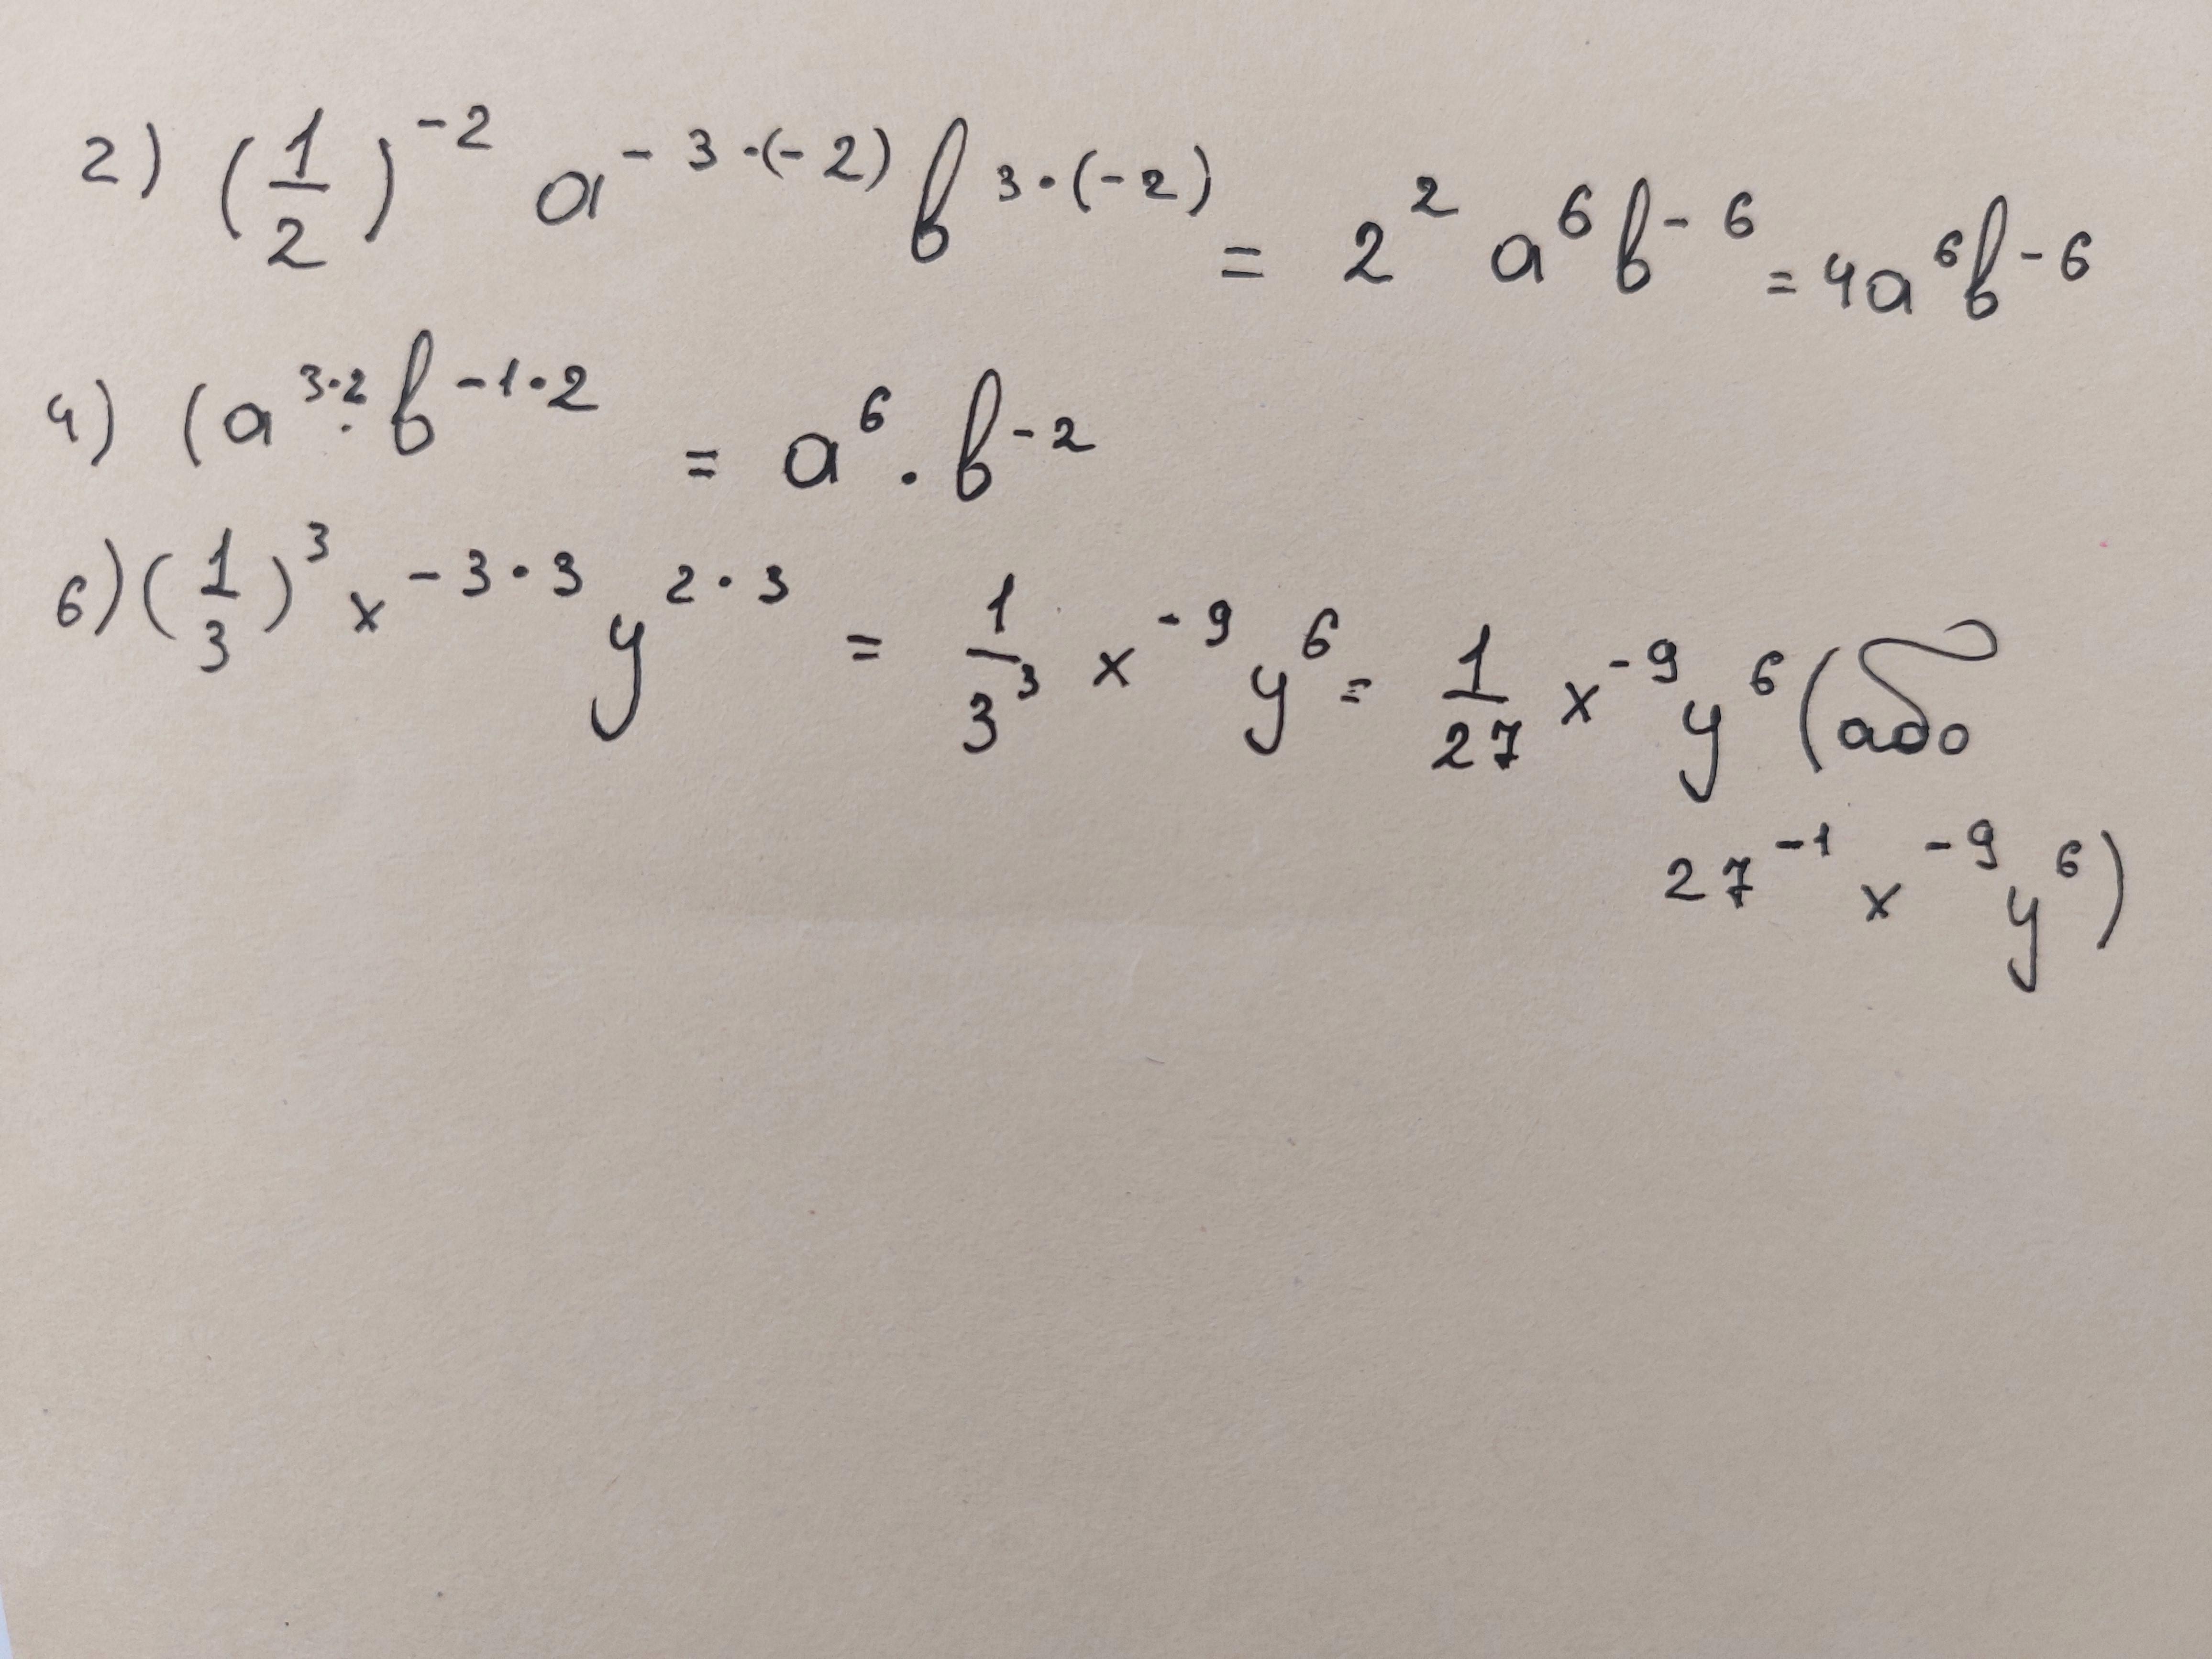 2) (1/2)^-2 a^-3·(-2) b^3·(-2) = 2^2 a^6 b^-6 = 4a^6 b^-6
4) (a^3·2 · b^-1·2 = a^6 · b^-2
6) (1/3)^3 x^-3·3 y^2·3 = 1/3^3 x^-9 y^6 = 1/27 x^-9 y^6 (або
27^-1 x^-9 y^6)